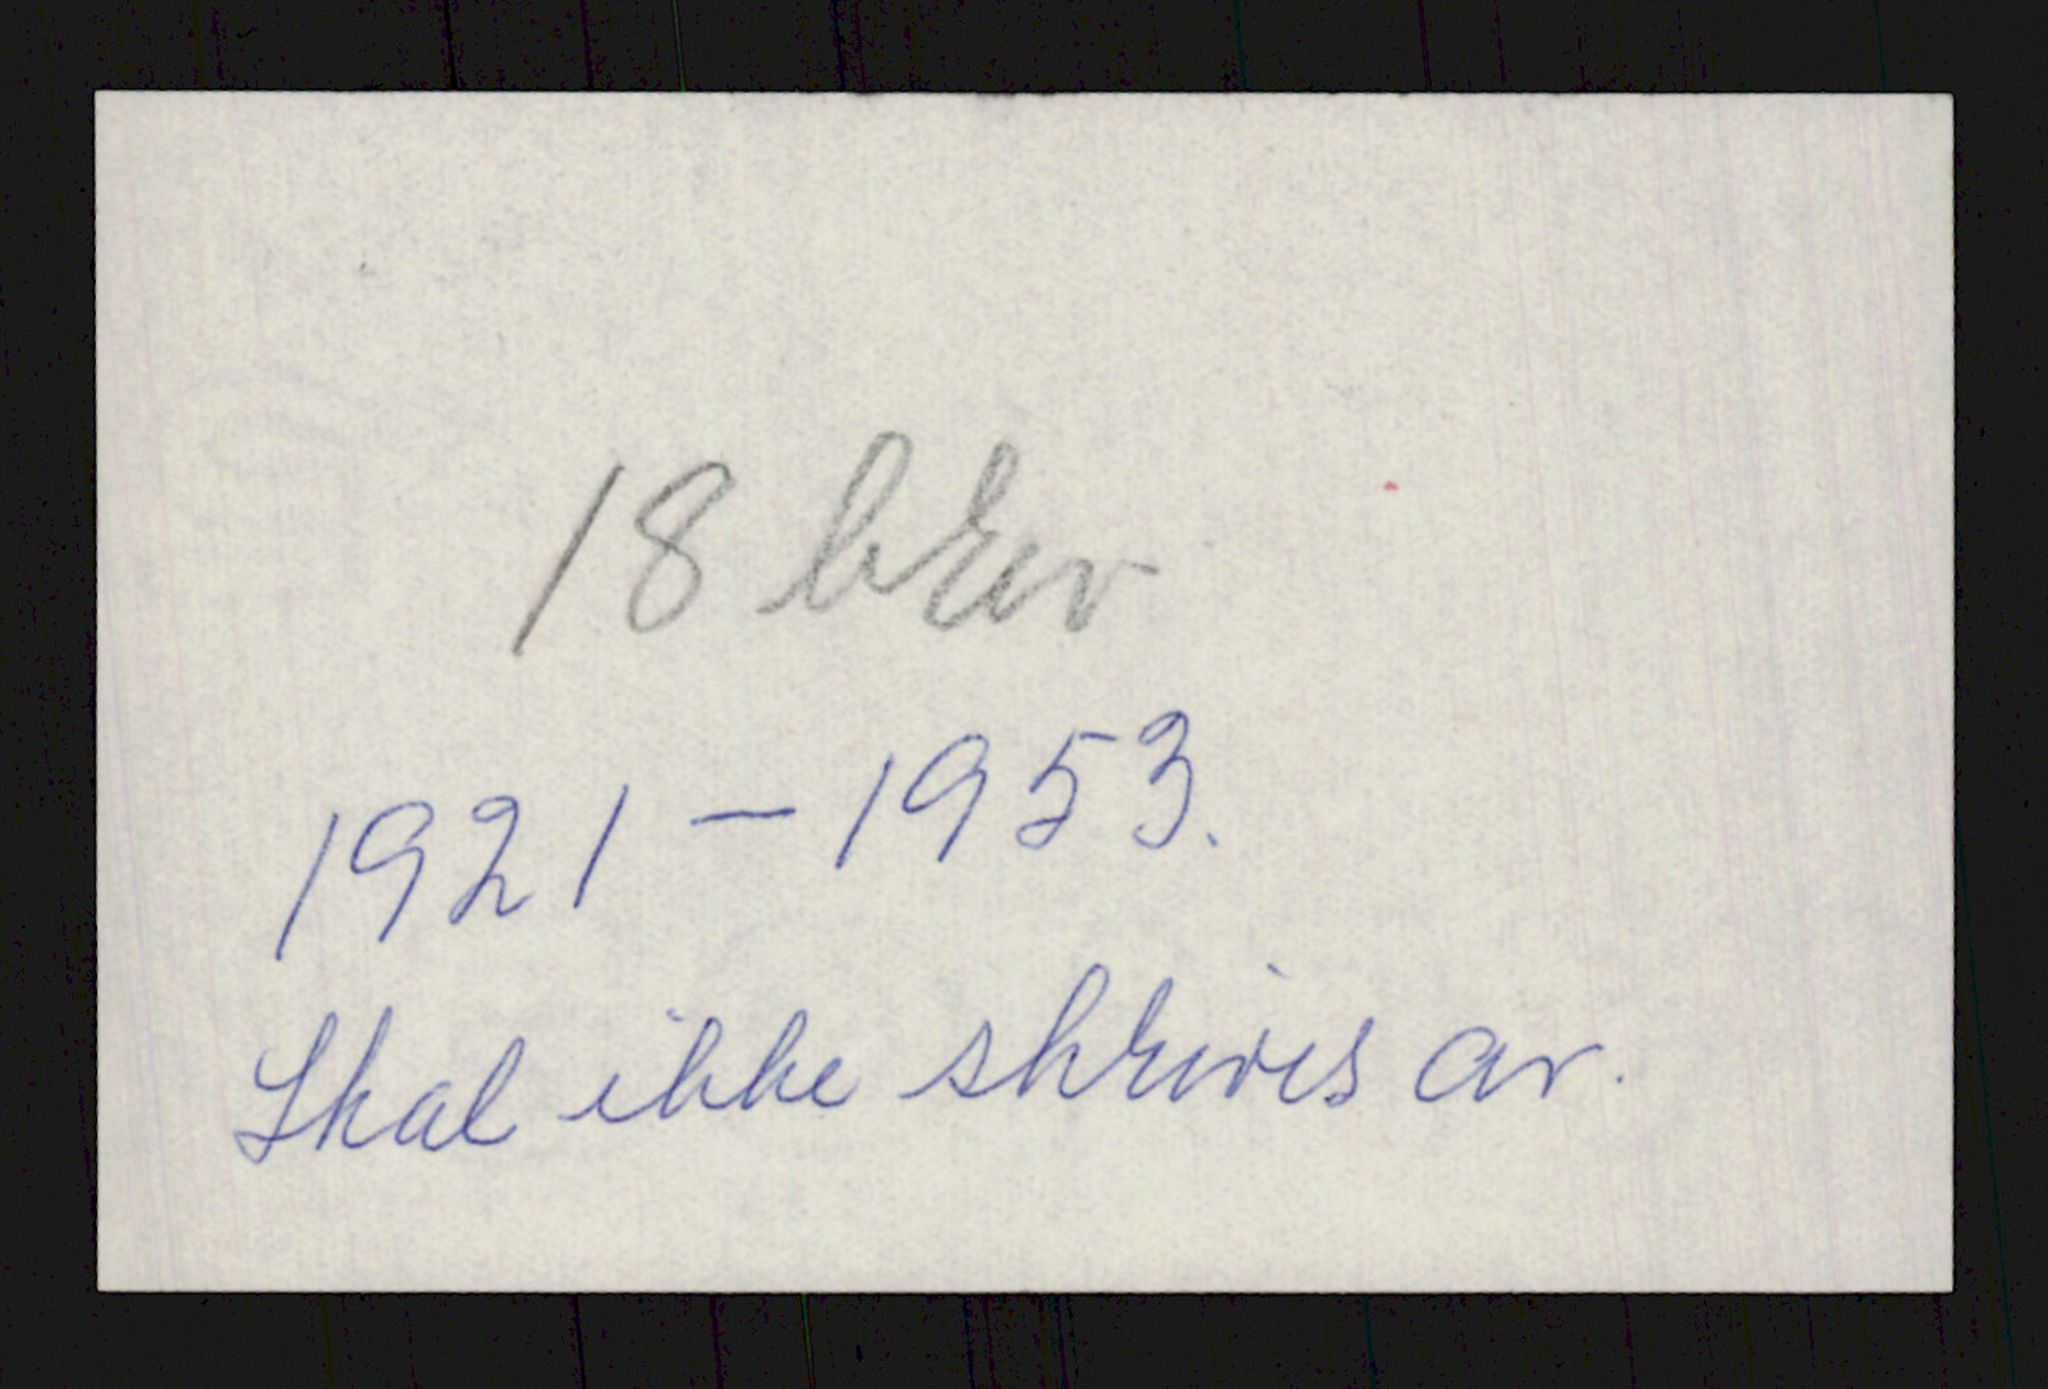 18 brev
1921 – 1953.
Skal ikke skrives av.